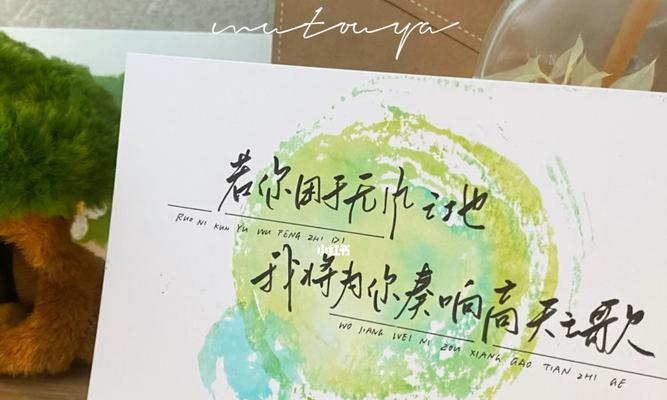 mutouya
若你困于无风之地
RUO NI KUN YU WU FENG ZHI DI
小红书
我将为你奏响高天之歌
WO JIANG WEI NI ZOU XIANG GAO TIAN ZHI GE